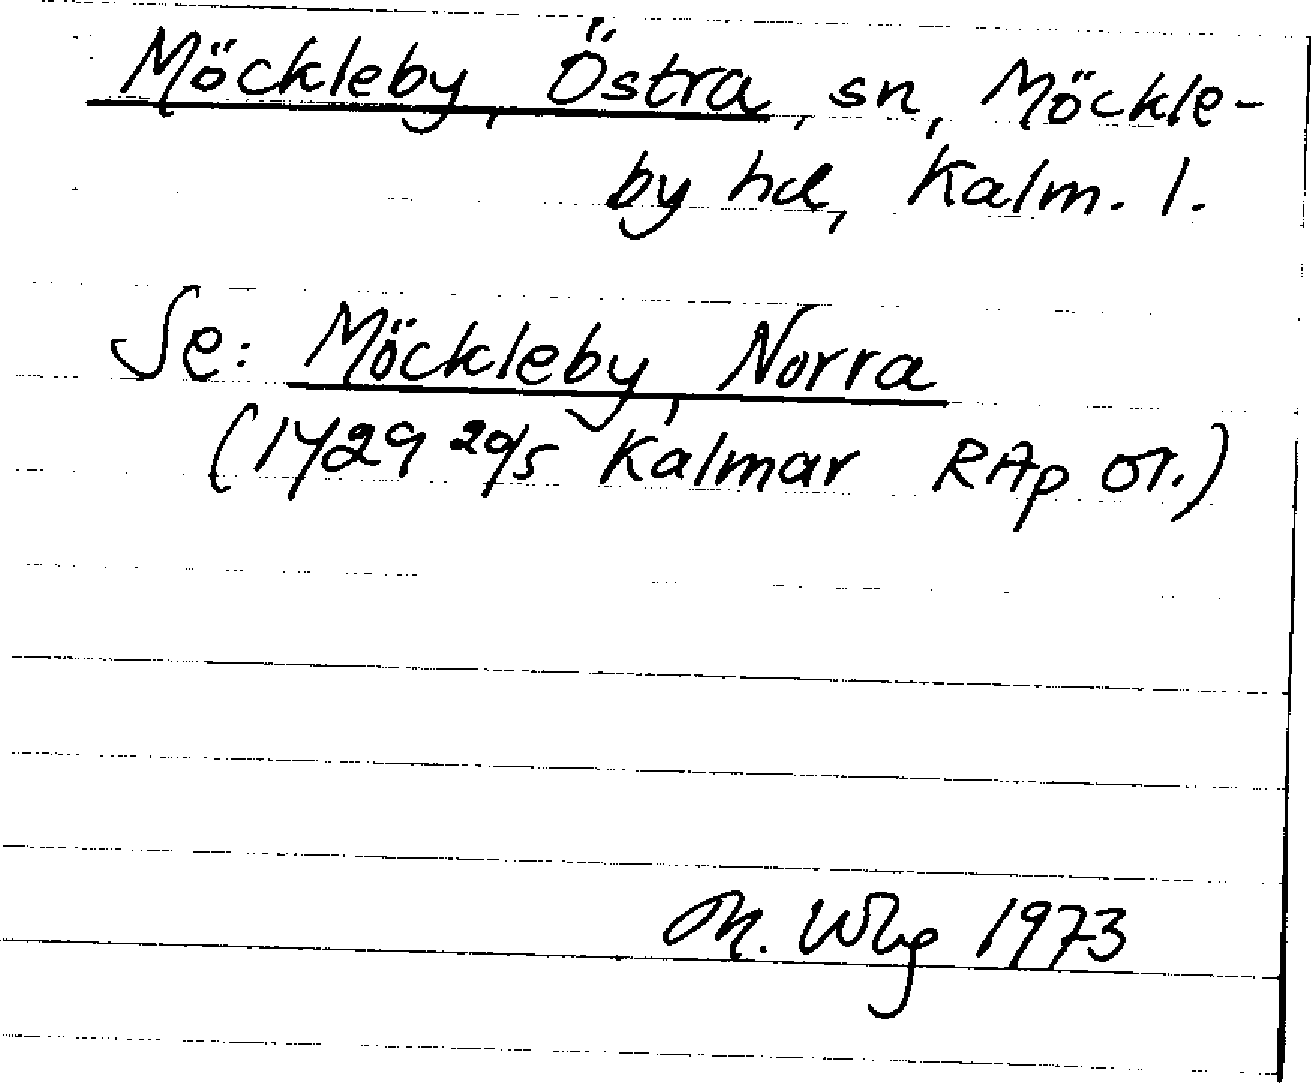 Möckleby, Östra, sn, Möckle-
by hd, Kalm. l.
Se: Möckleby, Norra
(1429 29/5 Kalmar RAp or.)
M. Wbg 1973